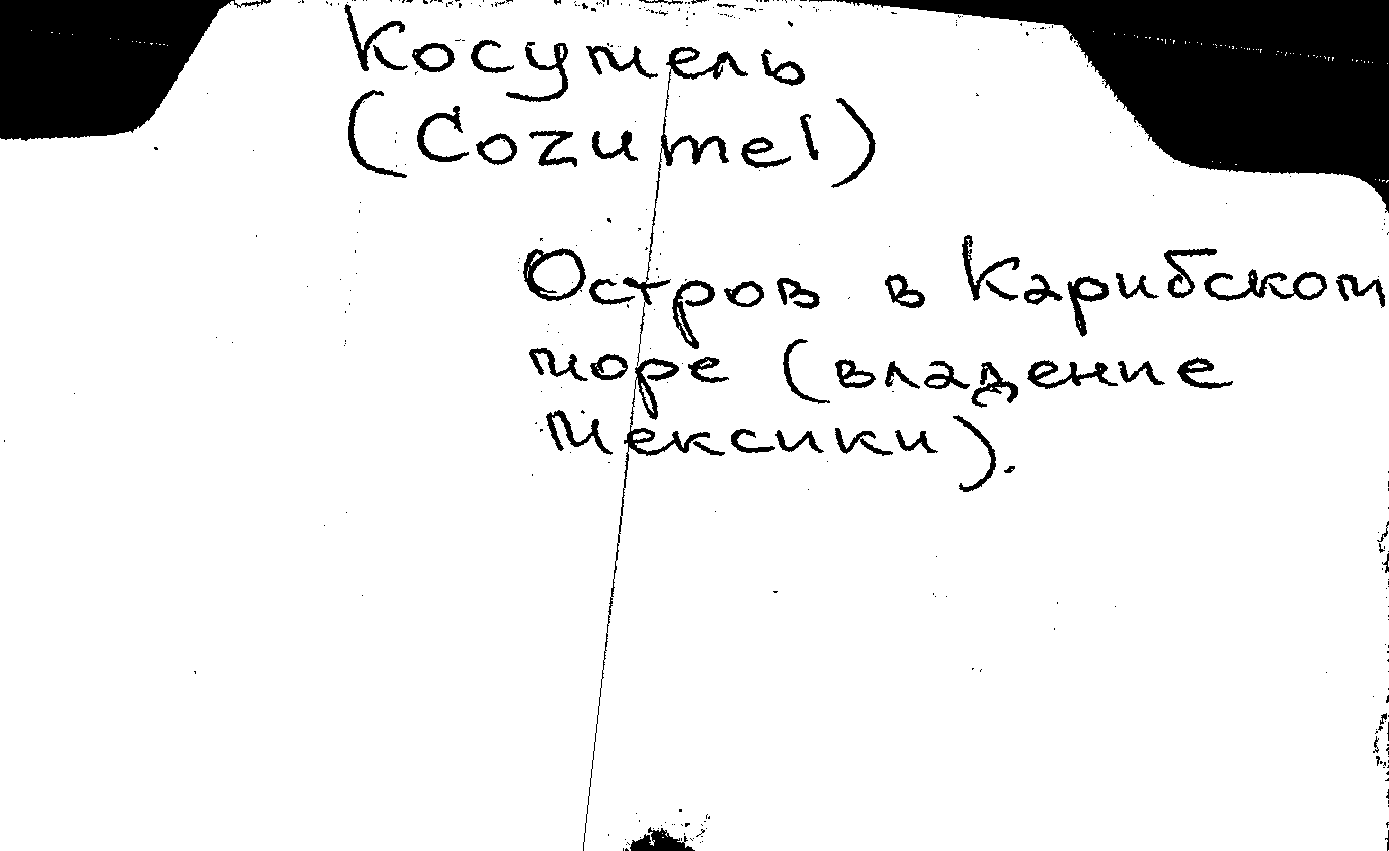 Косумель
(Cozumel)
Остров в Карибском
море (владение
Мексики).